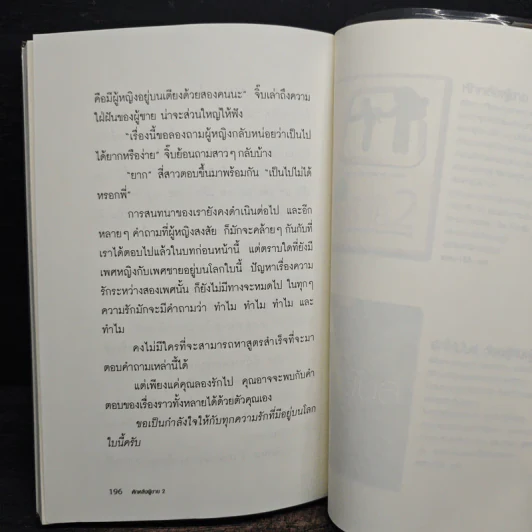 คือมีผู้หญิงอยู่บนเตียงด้วยสองคนนะ" จิ๊บเล่าถึงความ
ใฝ่ฝันของผู้ชาย น่าจะส่วนใหญ่ให้ฟัง
"เรื่องนี้ขอลองถามผู้หญิงกลับหน่อยว่าเป็นไป
ได้ยากหรือง่าย" จิ๊บย้อนถามสาวๆ กลับบ้าง
"ยาก" สี่สาวตอบขึ้นมาพร้อมกัน "เป็นไปไม่ได้
หรอกพี่"
การสนทนาของเรายังคงดำเนินต่อไป และอีก
หลายๆ คำถามที่ผู้หญิงสงสัย ก็มักจะคล้ายๆ กันกับที่
เราได้ตอบไปแล้วในบทก่อนหน้านี้ แต่ตราบใดที่ยังมี
เพศหญิงกับเพศชายอยู่บนโลกใบนี้ ปัญหาเรื่องความ
รักระหว่างสองเพศนั้น ก็ยังไม่มีทางจะหมดไป ในทุกๆ
ความรักมักจะมีคำถามว่า ทำไม ทำไม ทำไม และ
ทำไม
คงไม่มีใครที่จะสามารถหาสูตรสำเร็จที่จะมา
ตอบคำถามเหล่านี้ได้
แต่เพียงแค่คุณลองรักไป คุณอาจจะพบกับคำ
ตอบของเรื่องราวทั้งหลายได้ด้วยตัวคุณเอง
ขอเป็นกำลังใจให้กับทุกความรักที่มีอยู่บนโลก
ใบนี้ครับ
196 ผู้ชาย 2